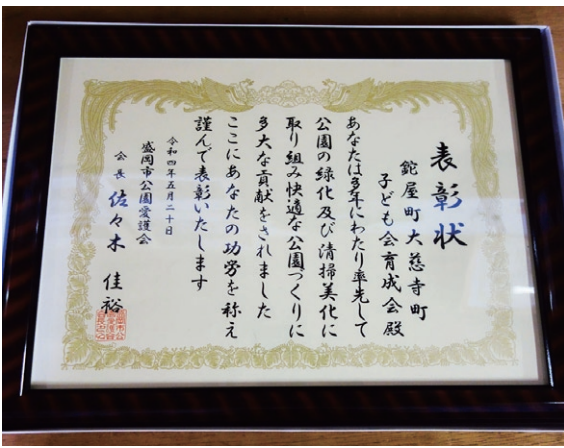 表彰状
鉈屋町大慈寺町
子ども会育成会殿
あなたは多年にわたり率先して
公園の緑化及び清掃美化に
取り組み快適な公園づくりに
多大な貢献をされました
ここにあなたの功労を称え
謹んで表彰いたします
令和四年五月二十日
盛岡市公園愛護会
会長 佐々木 佳裕